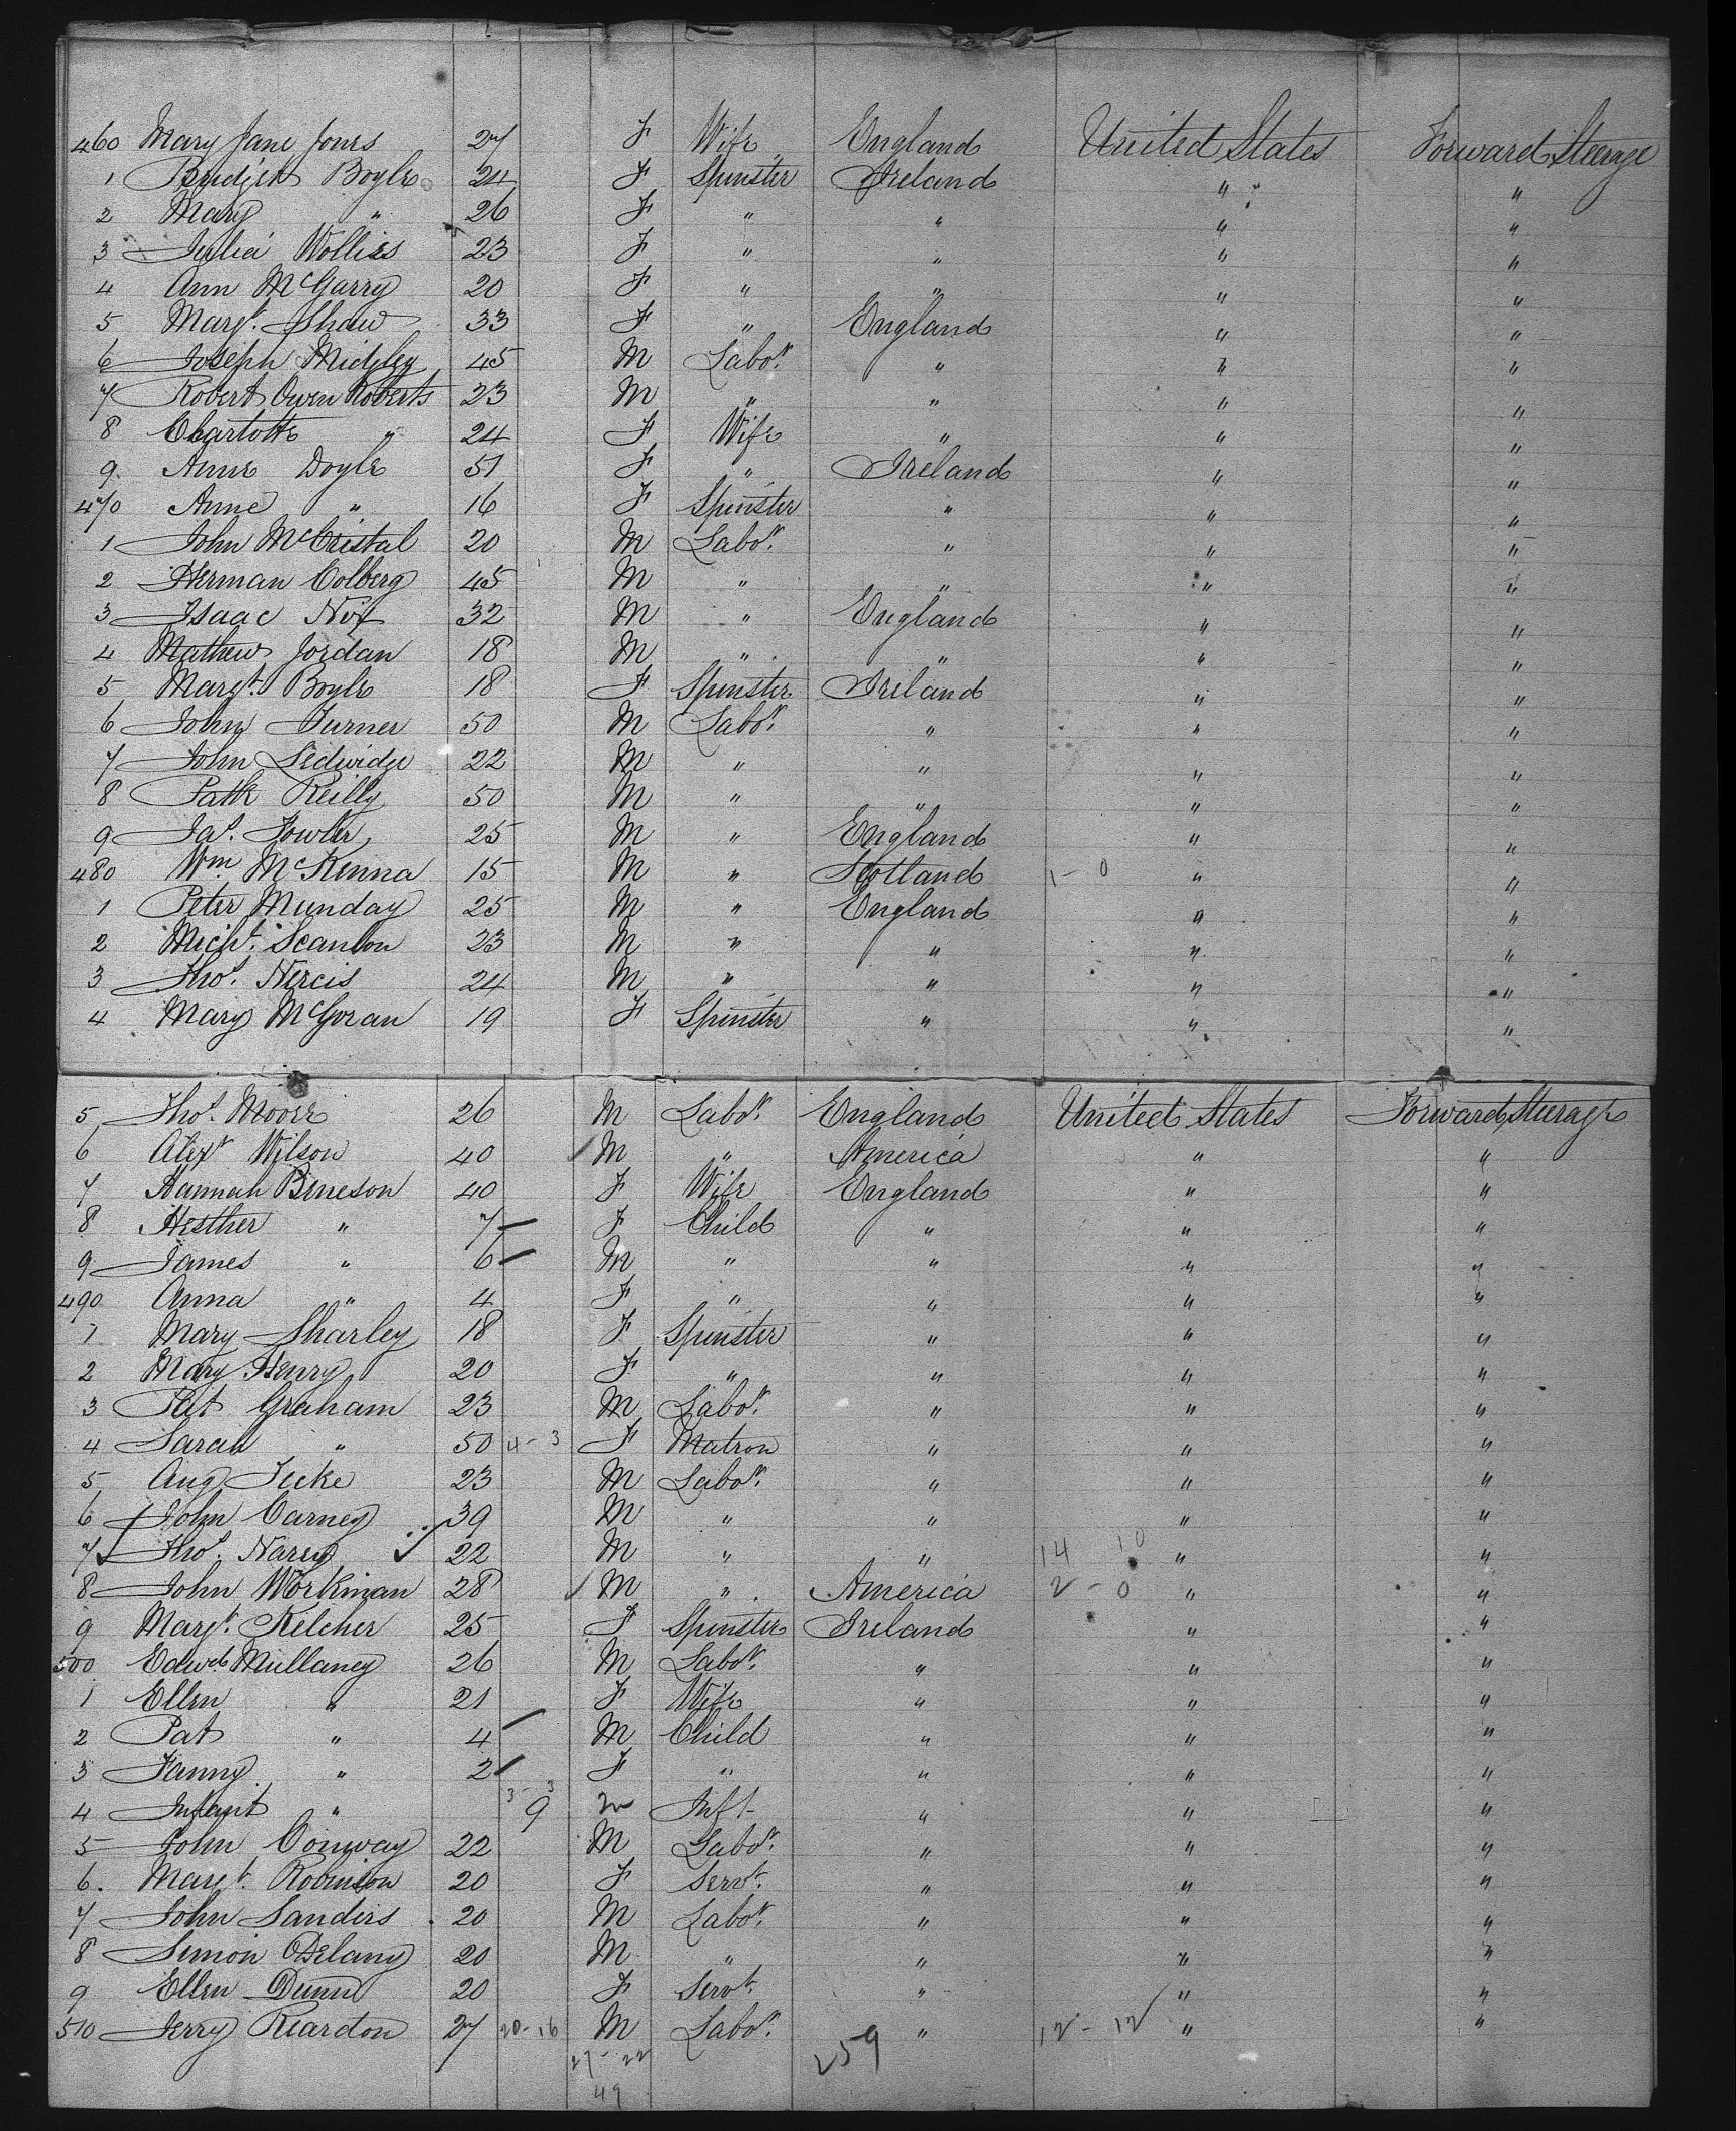 460 Mary Jane Jones 27 F Wife England United States Forward Steerage
1 Bridget Boyle 24 F Spinster Ireland " "
2 Mary " 26 F " " " "
3 Julia Wollies 23 F " " " "
4 Ann McGarry 20 F " " " "
5 Margt. Shaw 33 F " England " "
6 Joseph Midgley 45 M Labor. " " "
7 Robert Owen Roberts 23 M " " " "
8 Charlotte " 24 F Wife " " "
9. Anne Doyle 51 F " Ireland " "
470 Anne " 16 F Spinster " " "
1 John McCristal 20 M Labor. " " "
2 Herman Colberg 45 M " " " "
3 Isaac Nix 32 M " England " "
4 Mathew Jordan 18 M " " " "
5 Margt. Boyle 18 F Spinster Ireland " "
6 John Turner 50 M Labor. " " "
7 John Ledwidge 22 M " " " "
8 Patk Reilly 50 M " " " "
9 Jas. Fowler 25 M " England " "
480 Wm. McKenna 15 M " Scotland 1 - 0 " "
1 Peter Munday 25 M " England " "
2 Michl. Scanlon 23 M " " " "
3 Thos. Nercis 24 M " " " "
4 Mary McGoran 19 F Spinster " " "
5 Thos. Moore 26 M Labor. England United States Forward Steerage
6 Alexr Wilson 40 M " America " "
7 Hannah Beneson 40 F Wife England " "
8 Hesther " 7 F Child " " "
9 James " 6 M " " " "
490 Anna " 4 F " " " "
1 Mary Sharley 18 F Spinster " " "
2 Mary Henry 20 F " " " "
3 Pat Graham 23 M Labor. " " "
4 Sarah " 50 4 - 3 F Matron " " "
5 Aug Jecke 23 M Labor. " " "
6 John Carney 39 M " " " "
7 Thos. Narry 22 M " " 14 10 " "
8 John Workman 28 M " America 2 - 0 " "
9 Margt. Kelcher 25 F Spinster Ireland " "
500 Edwd Mullaney 26 M Labor. " " "
1 Ellen " 21 F Wife " " "
2 Pat " 4 M Child " " "
3 Fanny " 2 F " " " "
4 Infant " 3 - 3 9 m Inft " " "
5 John Conway 22 M Labor. " " "
6. Margt. Robinson 20 F Servt. " " "
7 John Sanders 20 M Labor. " " "
8 Simon Delany 20 M " " " "
9 Ellen Dunn 20 F Servt. " " "
510 Jerry Reardon 27 20 - 16 M Labor. " 12 - 12 " "
27 - 22 259
49